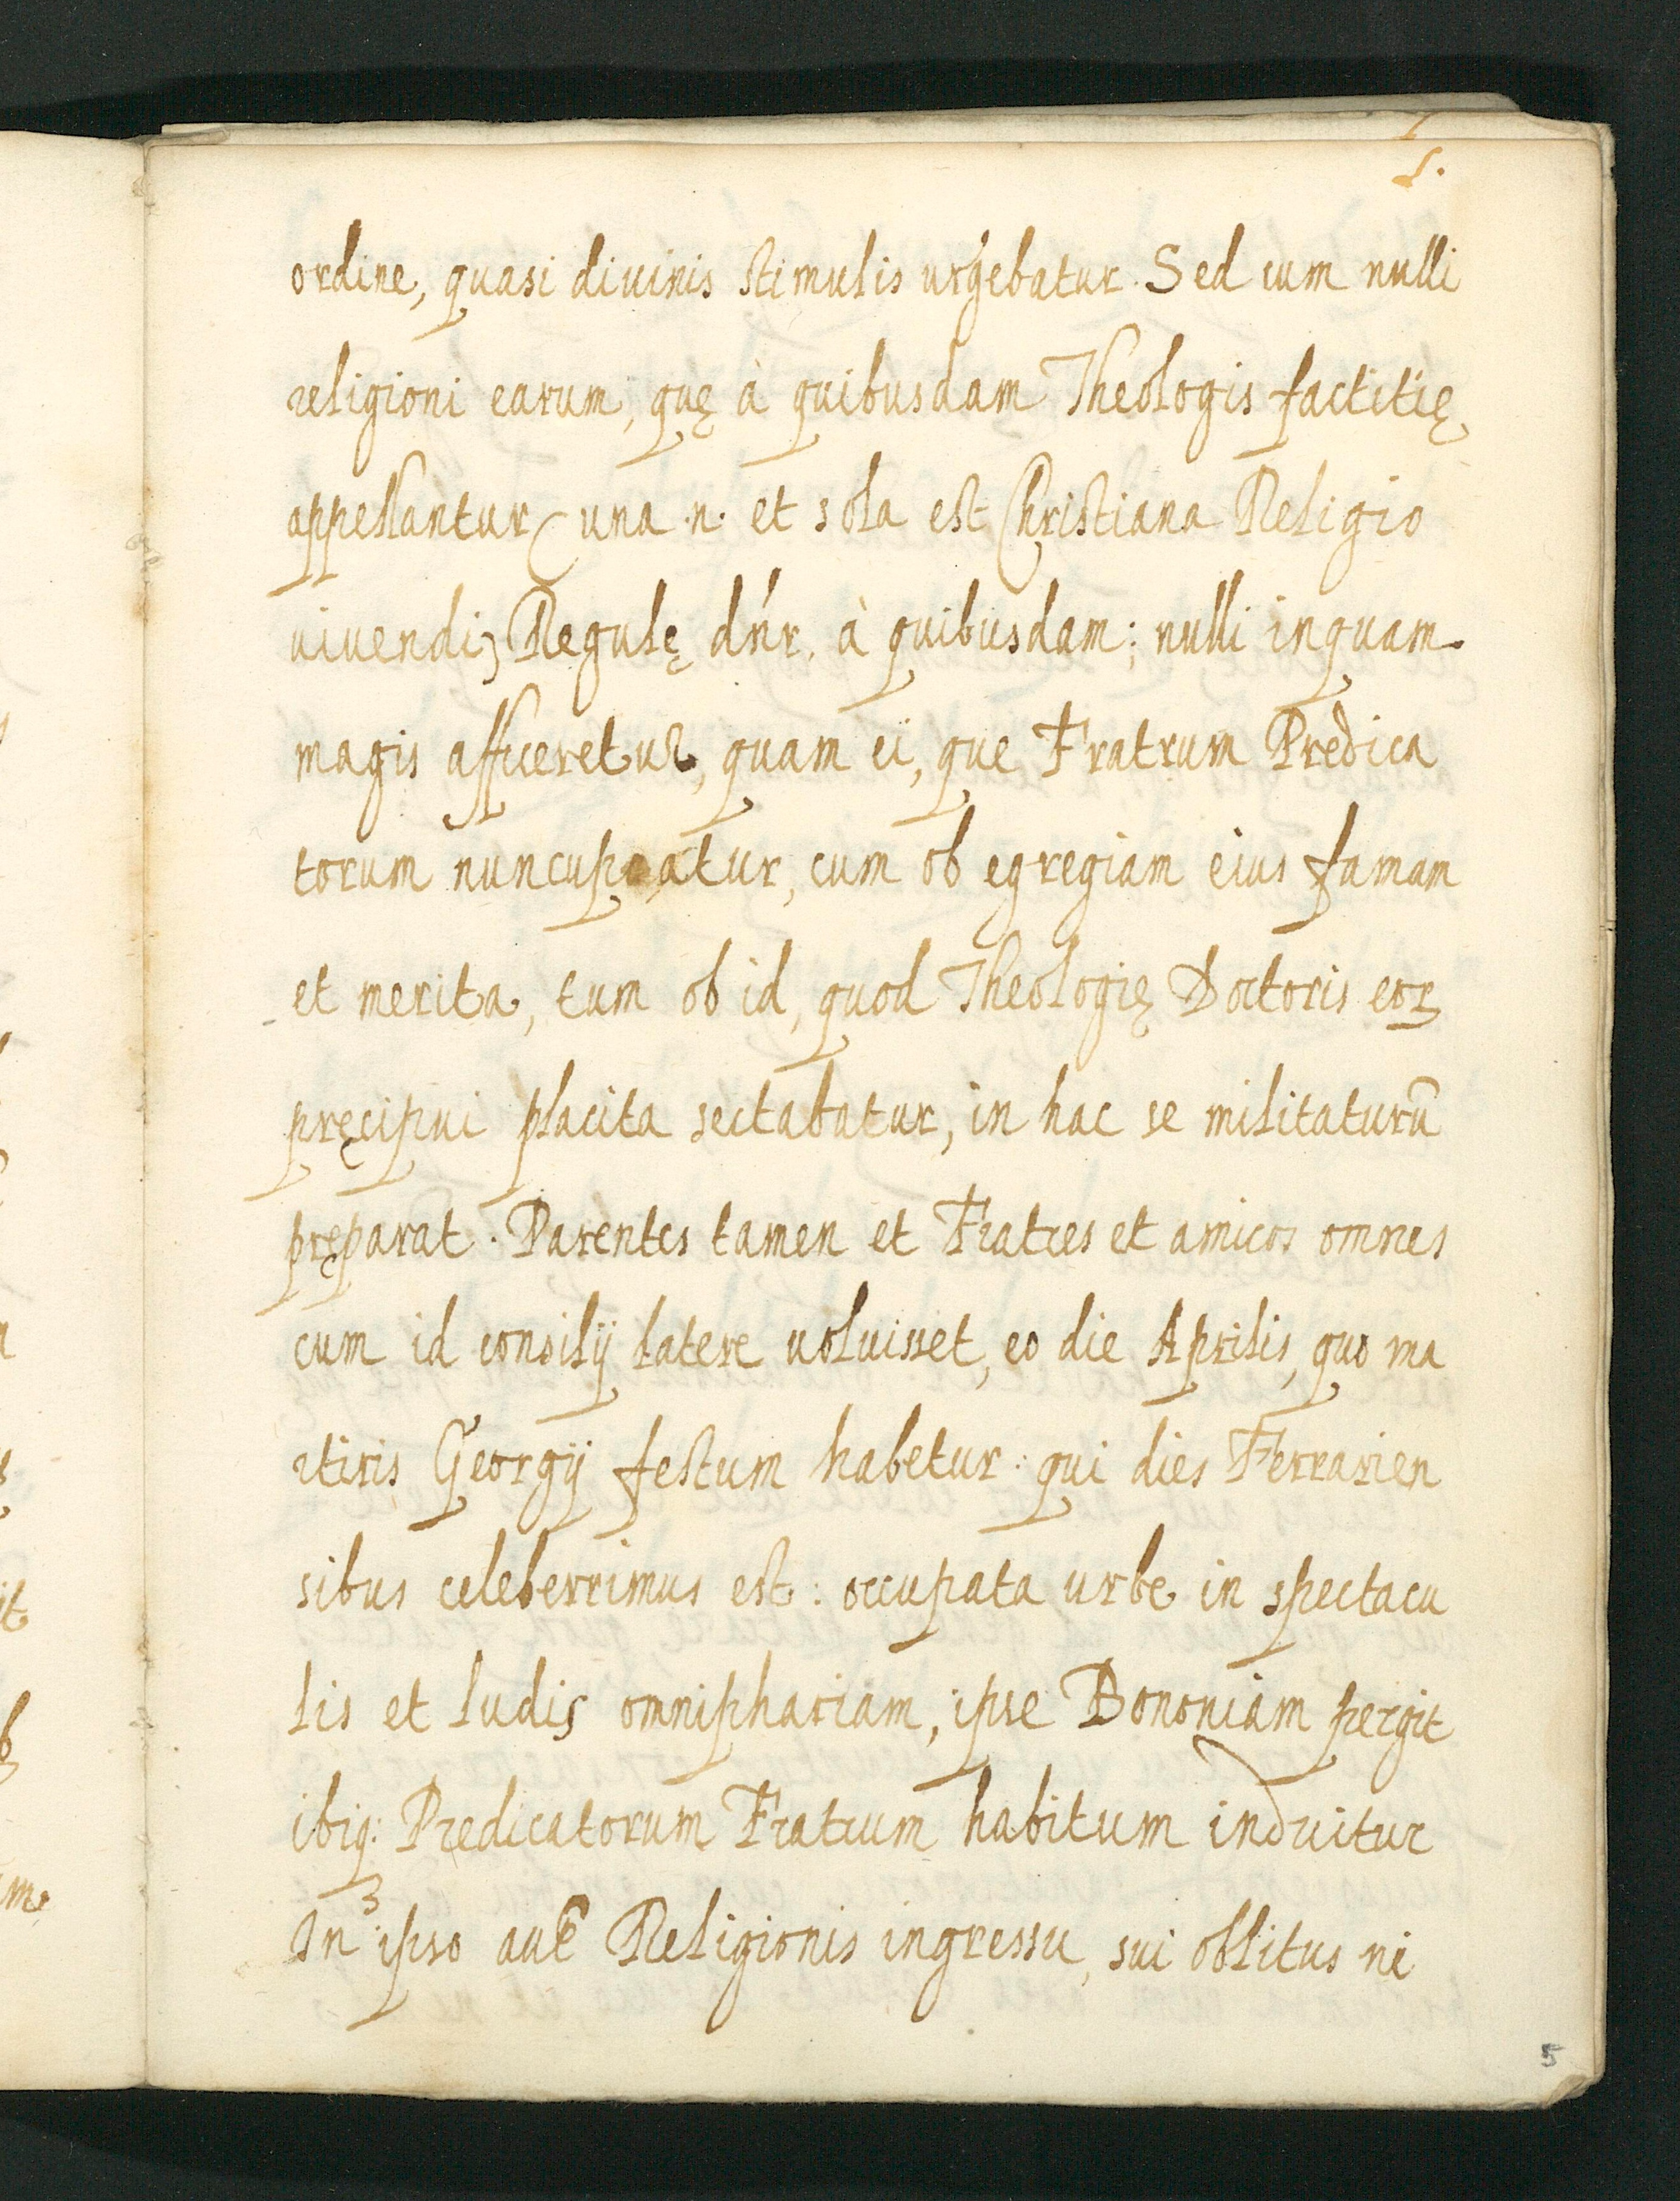 5.
ordine, quasi diuinis stimulis urgebatur. Sed cum nulli
religioni earum, quę à quibusdam Theologis factitię
appellantur (una .n. et sola est Christiana Religio
uiuendi) Regulę dn̄r. à quibusdam; nulli inquam
magis afficeretur, quam ei, que Fratrum Predica
torum nuncupatur, cum ob egregiam eius famam
et merita, tum ob id, quod Theologię Doctoris eoꝝ
pręcipui placita sectabatur, in hac se militaturū
pręparat. Parentes tamen et Fratres et amicos omnes
cum id consilij latere uoluisset, eo die Aprilis, quo ma
rtiris Georgij festum habetur: qui dies Ferrarien
sibus celeberrimus est: occupata urbe in spectacu
lis et ludis omniphariam, ipse Bononiam pergit
ibiq: Predicatorum Fratrum habitum induitur
In ipso autē Religionis ingressu, sui oblitus ni
5